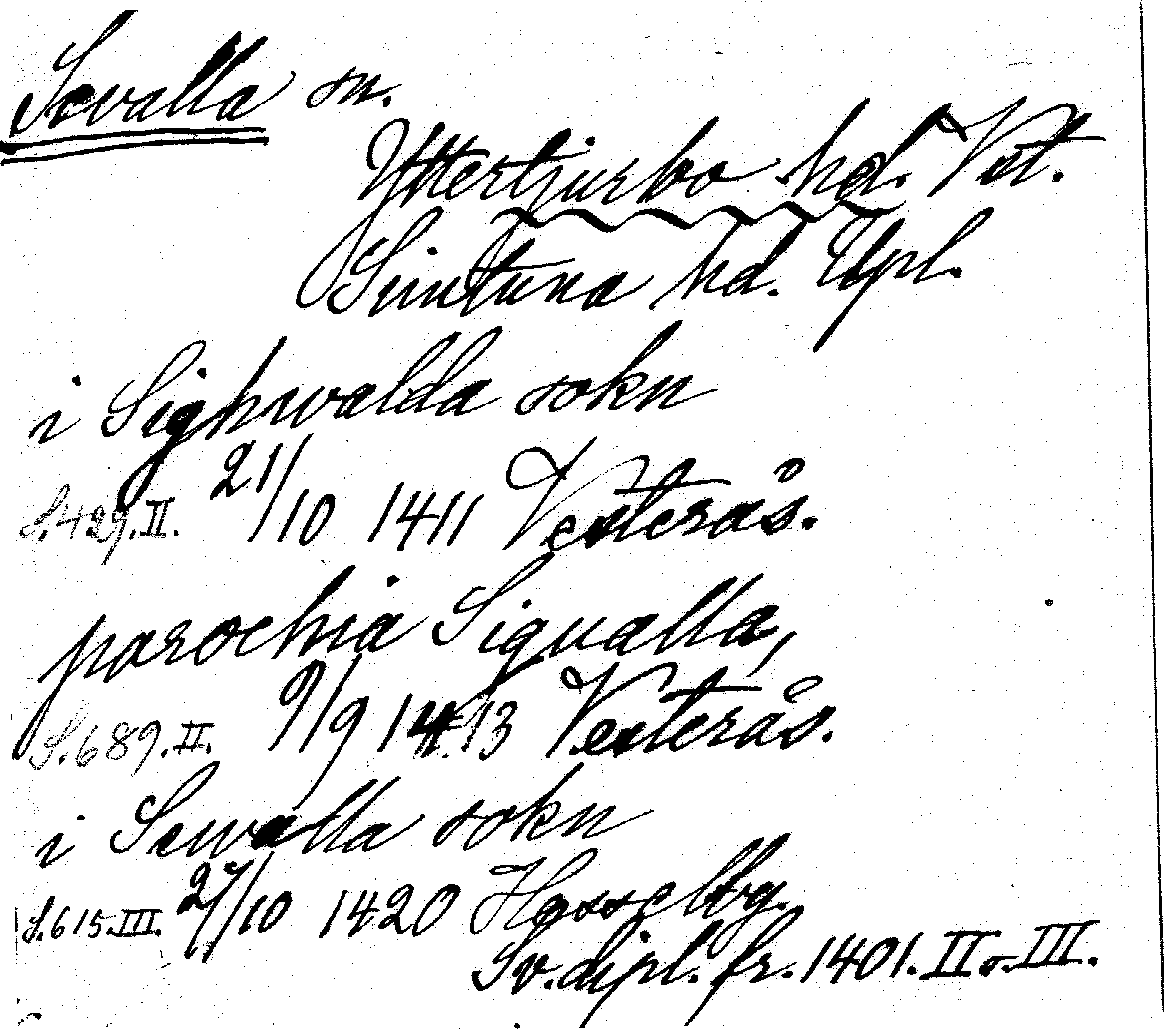 Sevalla sn.
Yttertjurbo hd. Vst.
Simtuna hd. Upl.
i Sighwalda sokn
S.429.II. 21/10 1411 Vesterås.
parochia Sigualla,
S.689.II. 9/9 1413 Vesterås.
i Sewalla sokn
S.615.III. 27/10 1420 Hesselbg.
Sv. dipl. fr. 1401. II o. III.